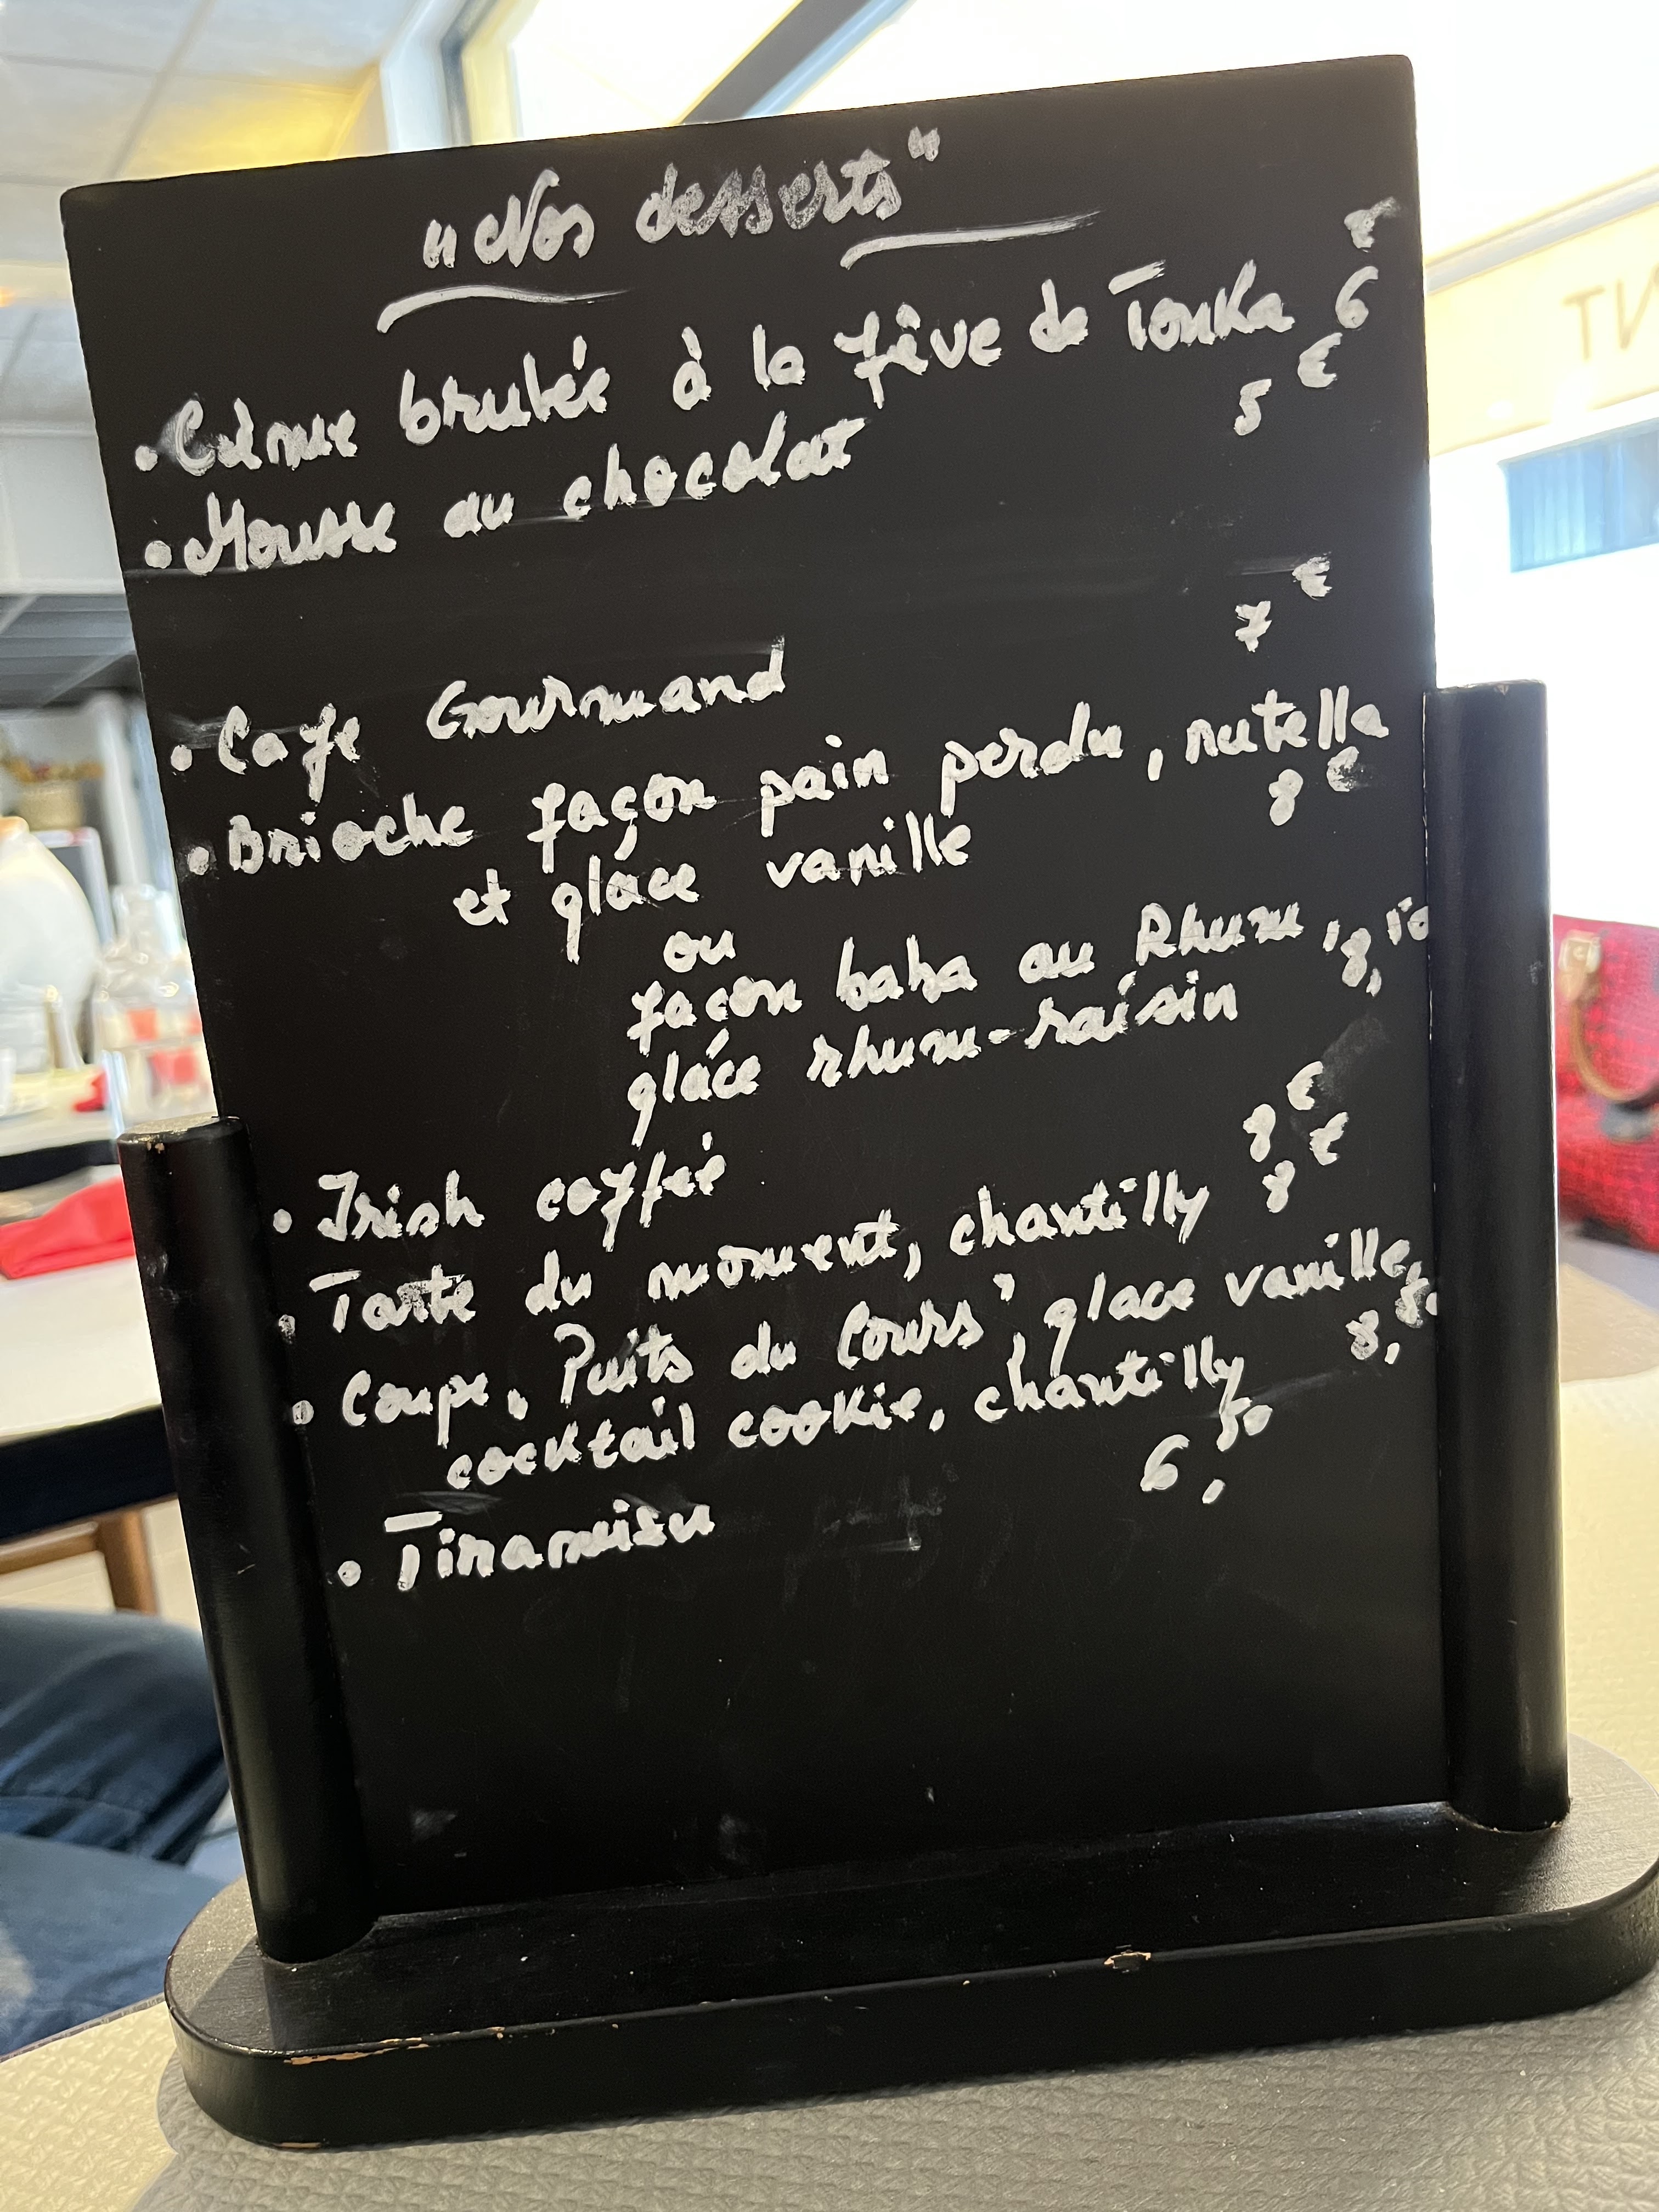 "Nos desserts"
• Crème brulée à la fêve de Tonka 6€
• Mousse au chocolat 5€
• Cafe Gourmand 7€
• Brioche façon pain perdu, nutella
et glace vanille 8€
ou
façon baba au Rhum,
glace rhum-raisin 8,
• Irish coffée 8€
• Tarte du moment, chantilly 8€
• Coupe, Puits du Cours', glace vanille,
cocktail cookie, chantilly 8,
• Tiramisu 6,50